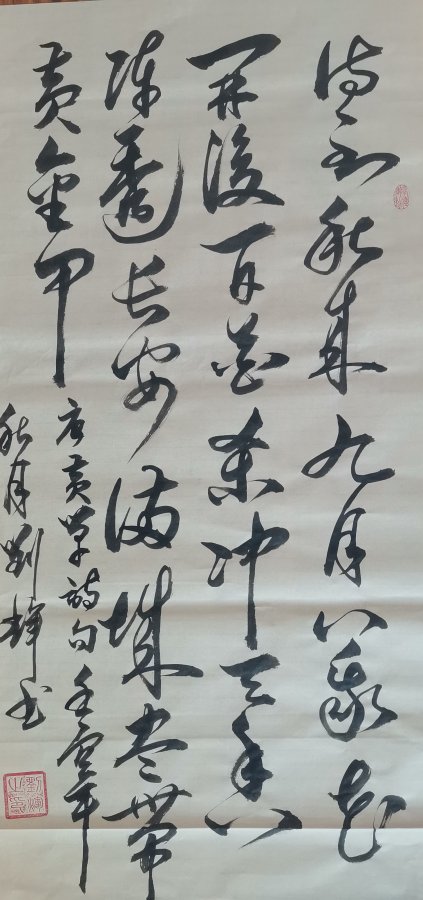 待到秋来九月八我花
开後百花杀冲天香
阵透长安满城尽带
黄金甲
唐黄巢诗句壬寅年
秋月刘辉书